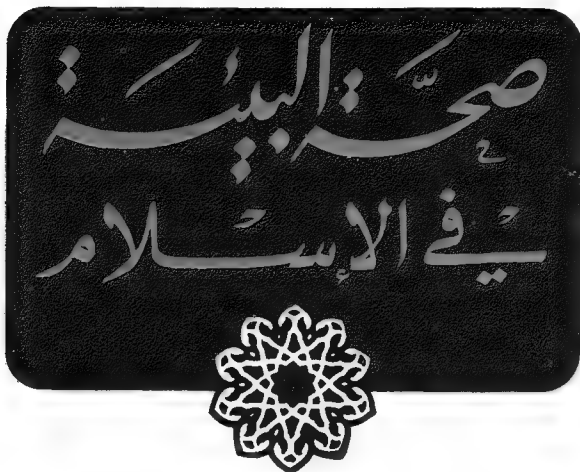 صحّة البيئة
في الإسلام